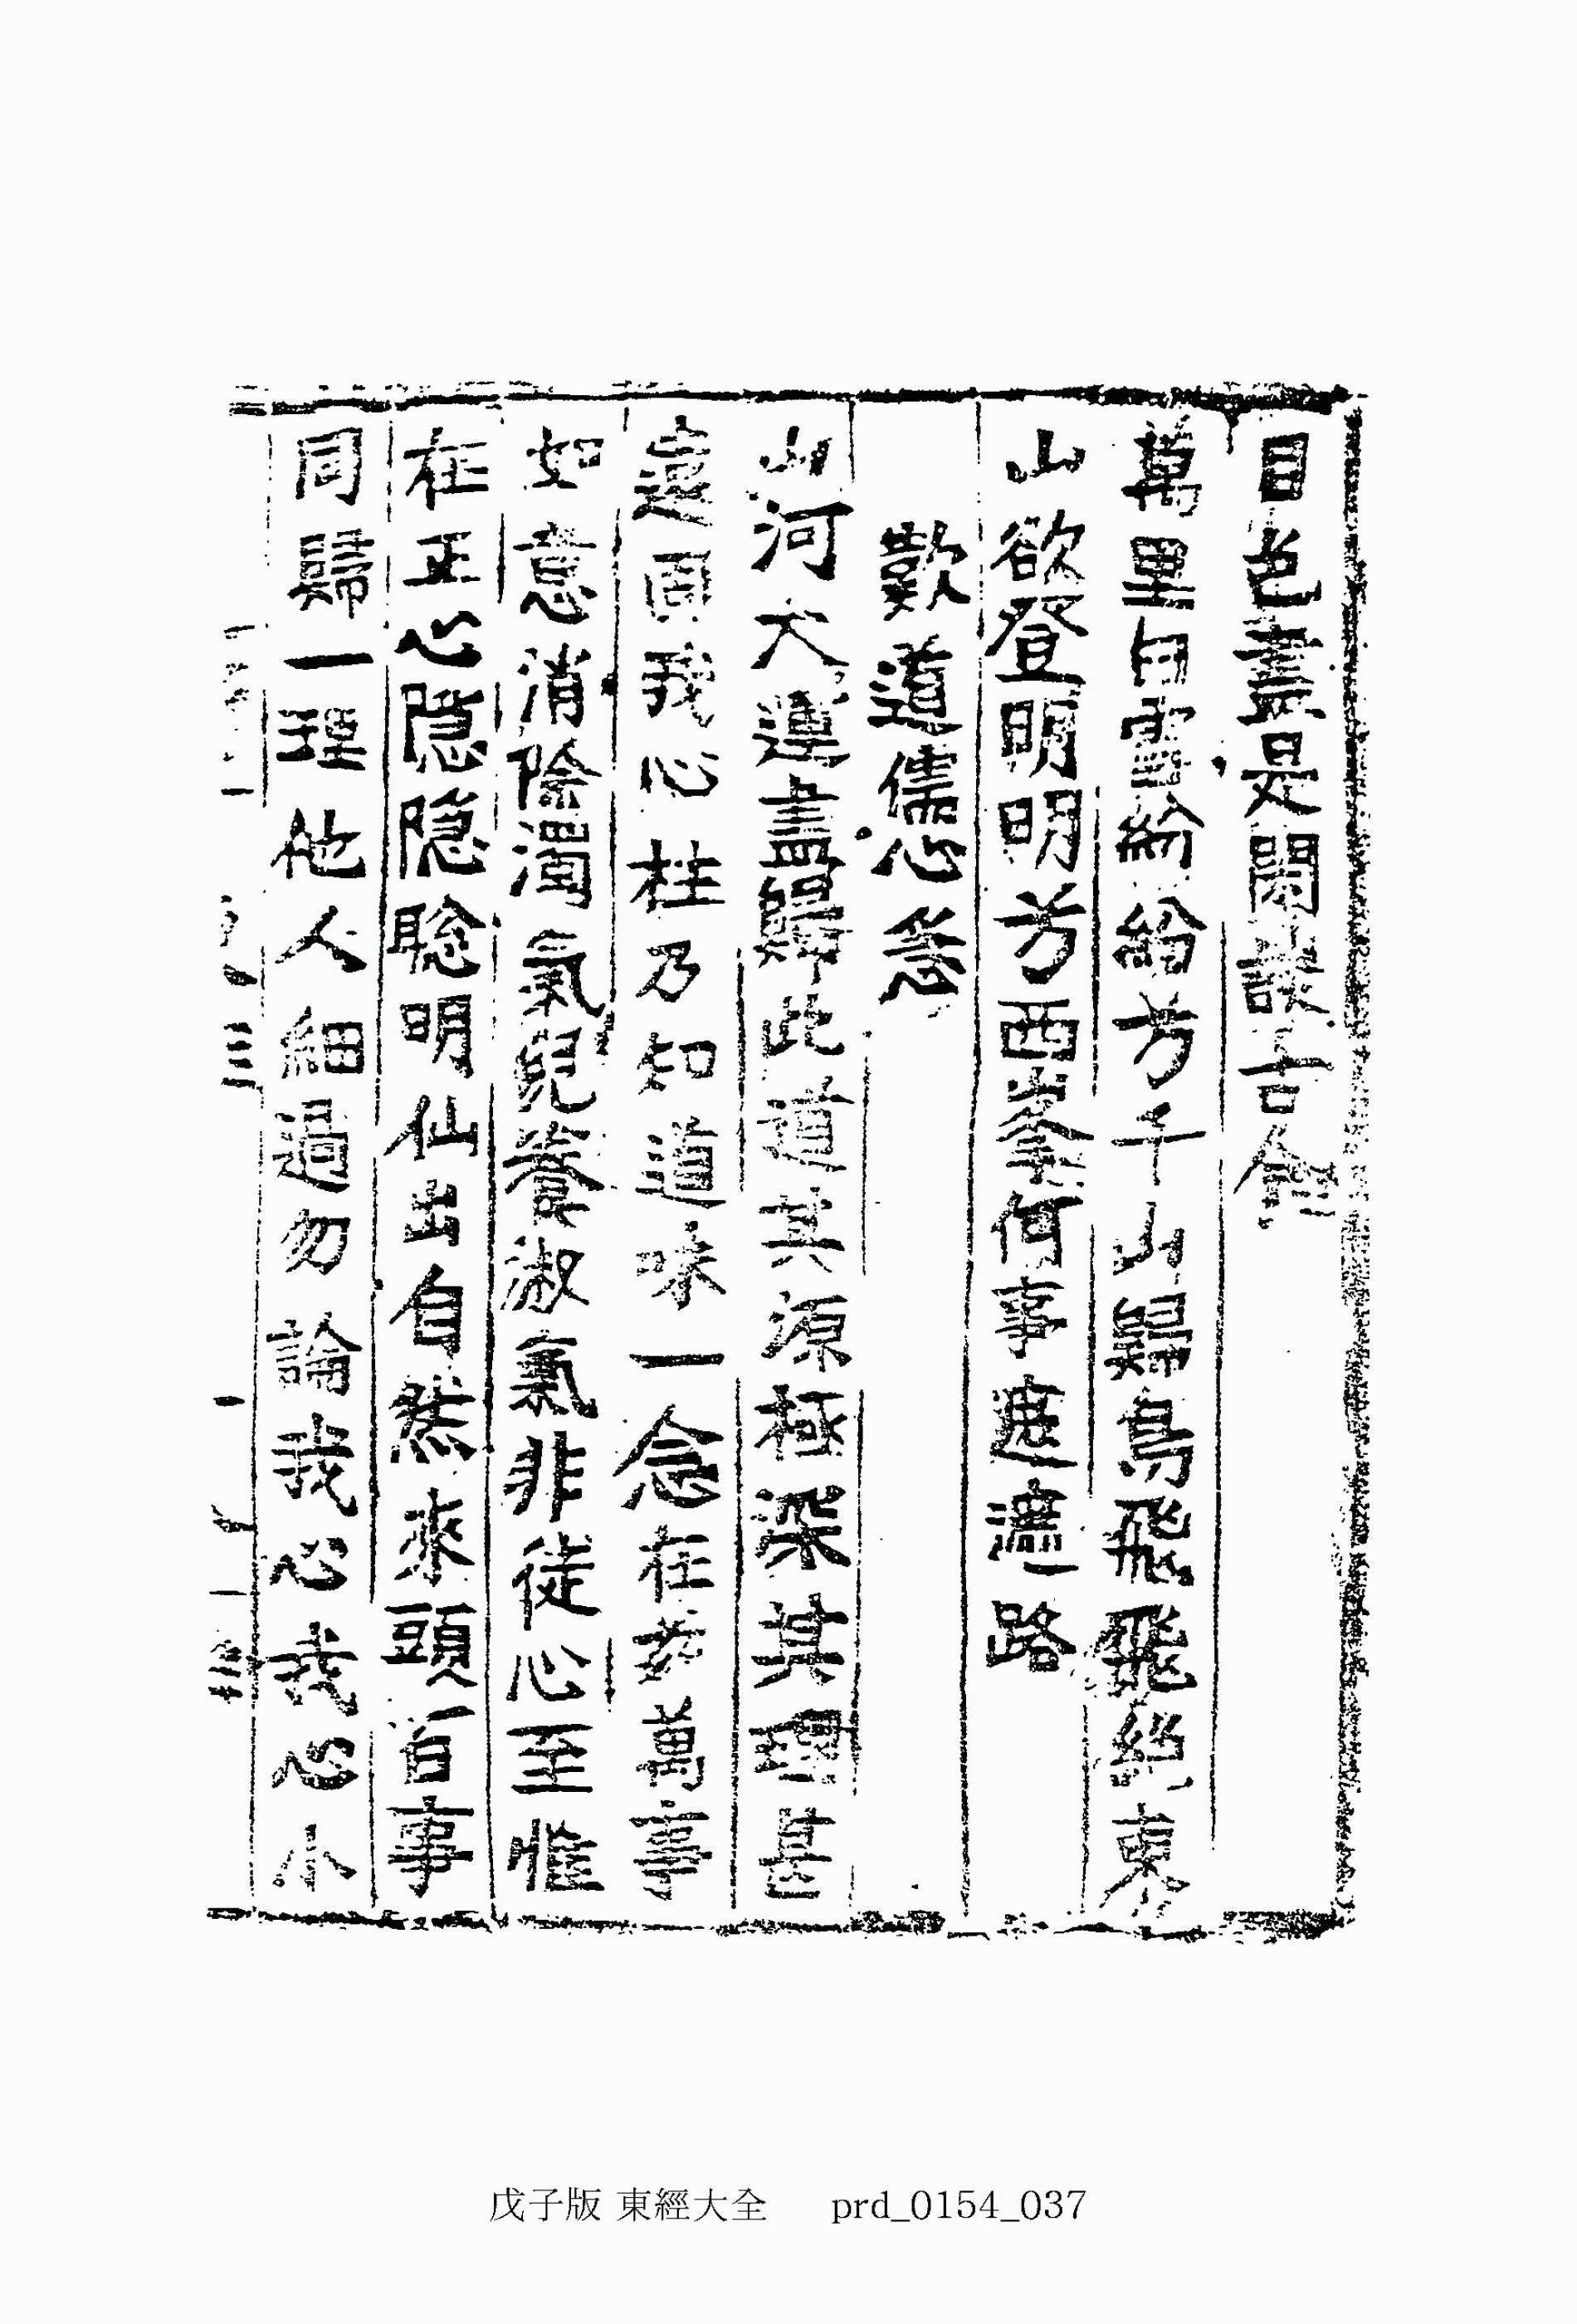 目色盡是閑談古今
萬里白雪紛紛兮千山歸鳥飛飛絶東
山欲登明明兮西峯何事遮遮路
歎道儒心急
山河大運盡歸此道其源極深其理甚
遠固我心柱乃知道味一念在玆萬事
如意消除濁氣兒養淑氣非徒心至惟
在正心隱隱聰明仙出自然來頭百事
同歸一理他人細過勿論我心我心小
戊子版 東經大全 prd_0154_037